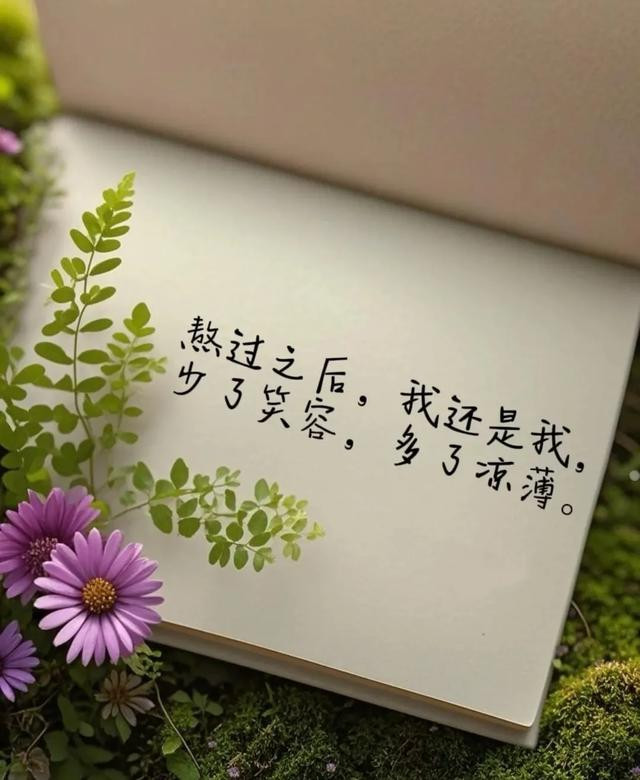 熬过之后，我还是我，
少了笑容，多了凉薄。